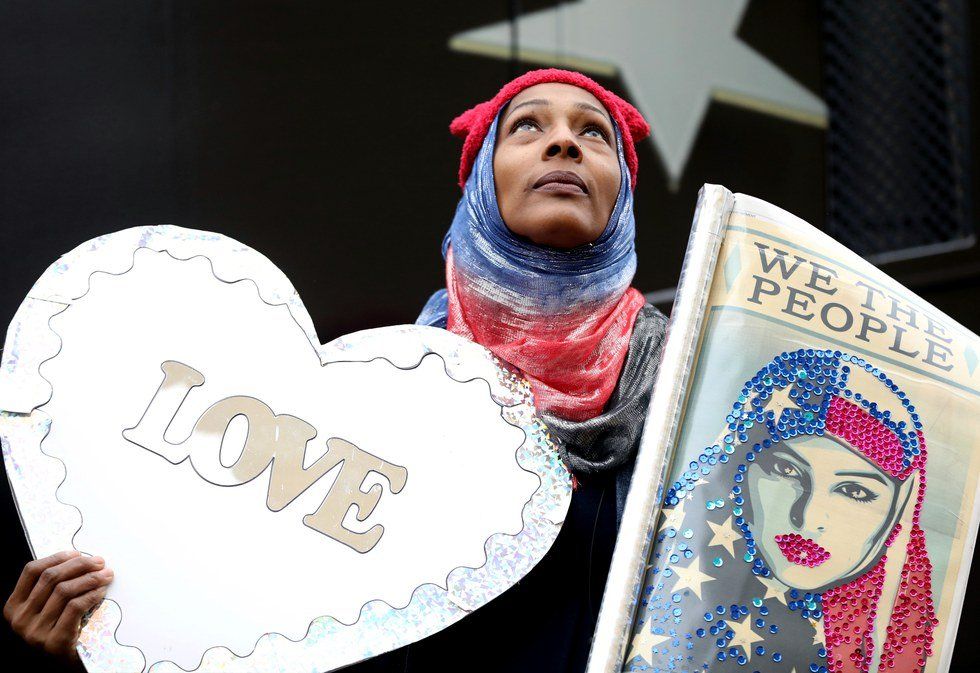 LOVE
WE THE
PEOPLE